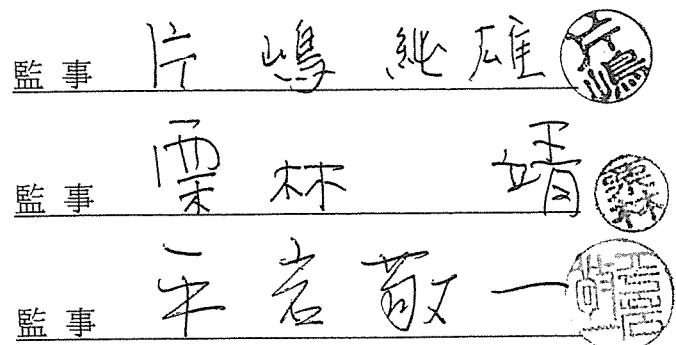 監事 片嶋純雄 片嶋
監事 栗林 靖 栗林
監事 平岩敬一